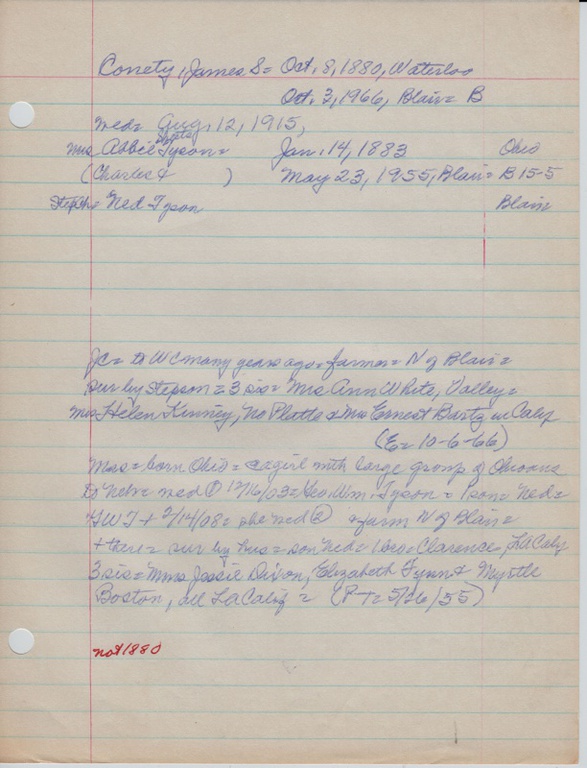 Conety, James S = Oct. 8, 1880, Waterloo
Oct. 3, 1966, Blair = B
med = Aug. 12, 1915,
Mrs Abbie Tyson = Jan. 14, 1883 Ohio
(Charles & ) May 23, 1955, Blair = B 15-5
Steps = Ned Tyson Blair
JC = to WC many years ago = farmer = N of Blair =
sur by stepson = 3 sis = Mrs Ann White, Valley =
Mrs Helen Kinney, No Platte & Mrs Ernest in Calif
(E = 10-6-66)
Mrs = born Ohio = as girl with large group of Ohioans
to Neb = med ① 12/16/03 = Geo. Wm. Tyson = 1 son = Ned =
GWT + 2/14/08 = she med ② = farm N of Blair =
+ there = sur by hus = son Ned = 1 bro = Clarence, LA Calif
3 sis = Mmes Jessie Dixon, Elizabeth & Myrtle
Boston, all LA Calif = (P-T = 5/26/55)
not 1880